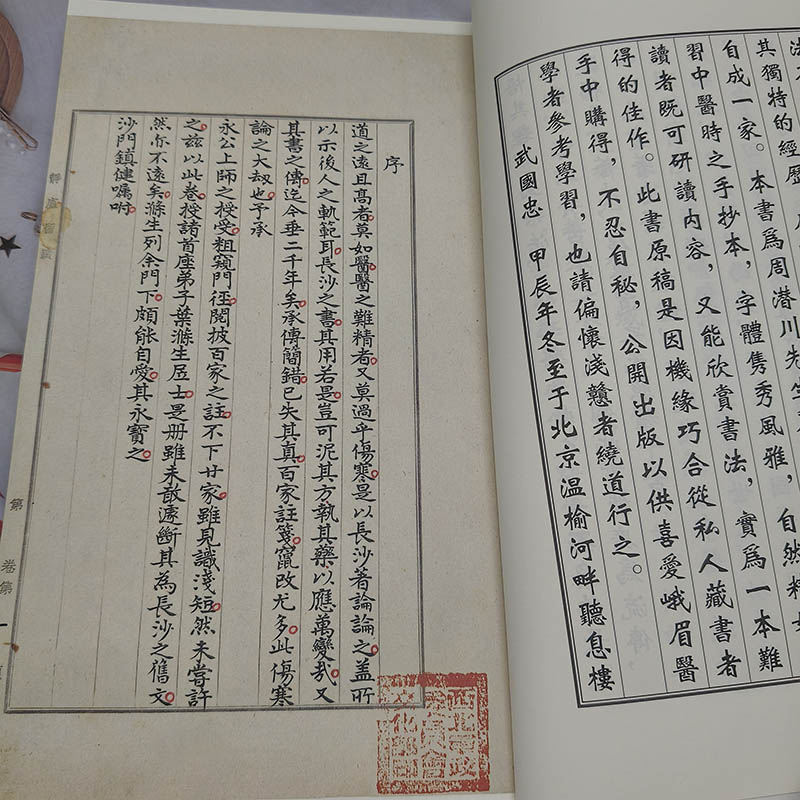 其獨特的經歷
自成一家。本書爲周潛川先生
習中醫時之手抄本，字體雋秀風雅，自然精
讀者既可研讀內容，又能欣賞書法，實爲一本難
得的佳作。此書原稿是因機緣巧合從私人藏書者
手中購得，不忍自秘，公開出版以供喜愛峨眉醫
學者參考學習，也請偏懷淺戇者繞道行之。
武國忠 甲辰年冬至于北京溫榆河畔聽息樓
序
道之遠且高者莫如醫醫之難精者又莫過乎傷寒是以長沙著論論之盖所
以示後人之軌範耳長沙之書其用若是豈可泥其方執其藥以應萬變哉又
其書之傳迄今垂二千年矣承傳簡錯已失其真百家註箋竄改尤多此傷寒
論之大劫也予承
永公上師之授受粗窺門徑閱披百家之註不下廿家雖見識淺短然未嘗許
之茲以此卷授諸首座弟子葉滌生居士是册雖未敢遽斷其為長沙之舊文
然亦不遠矣滌生列余門下頗能自愛其永寶之
沙門鎮健囑咐
第
卷集